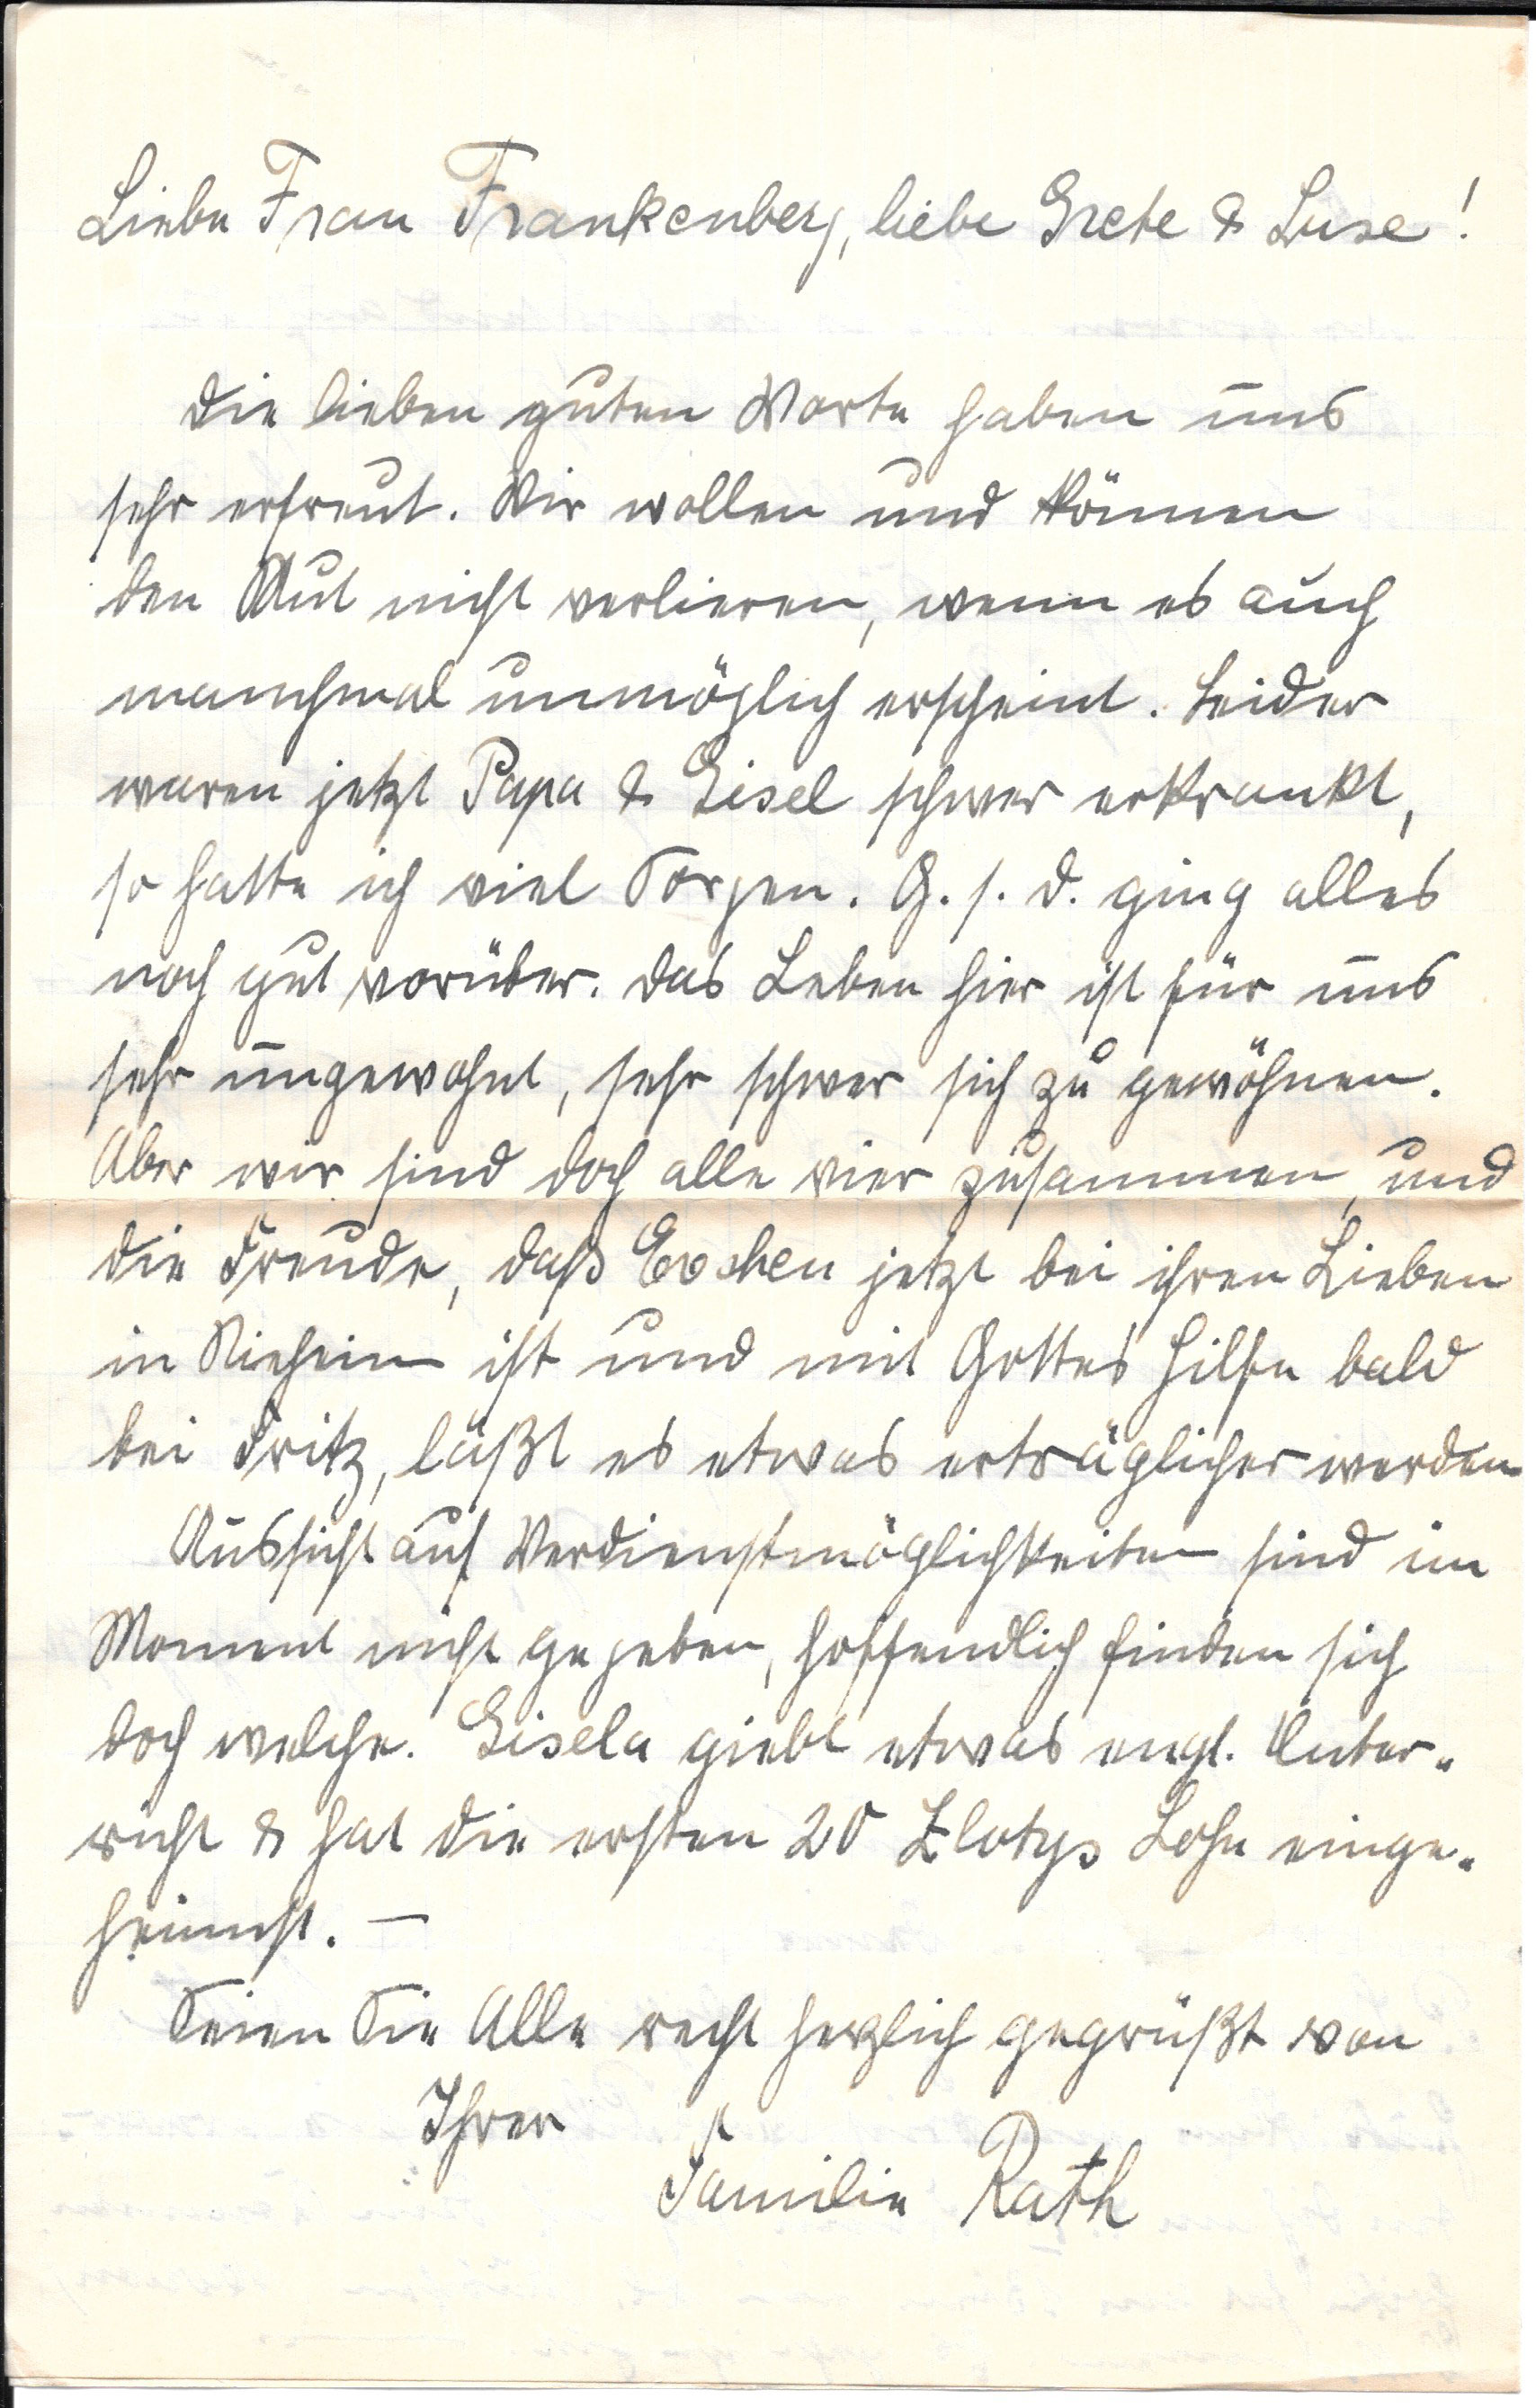 Liebe Frau Frankenberg, liebe Grete & Luse!
Die lieben guten Worte haben uns
sehr erfreut. Wir wollen und können
den Mut nicht verlieren, wenn es auch
manchmal unmöglich erscheint. Leider
waren jetzt Papa & Gisel schwer erkrankt,
so hatte ich viel Sorgen. G. s. d. ging alles
noch gut vorüber. Das Leben hier ist für uns
sehr ungewohnt, sehr schwer sich zu gewöhnen.
Aber wir sind doch alle vier zusammen, und
die Freude, daß Evchen jetzt bei ihren Lieben
in Riehein ist und mit Gottes Hilfe bald
bei Fritz, läßt es etwas erträglicher werden
Aussicht auf Verdienstmöglichkeiten sind im
Moment nicht gegeben, hoffendlich finden sich
doch welche. Gisela giebt etwas engl. Unter-
richt & hat die ersten 20 Zlotys Lohn einge-
heimst. —
Seien Sie Alle recht herzlich gegrüßt von
Ihrer
Familie Rath